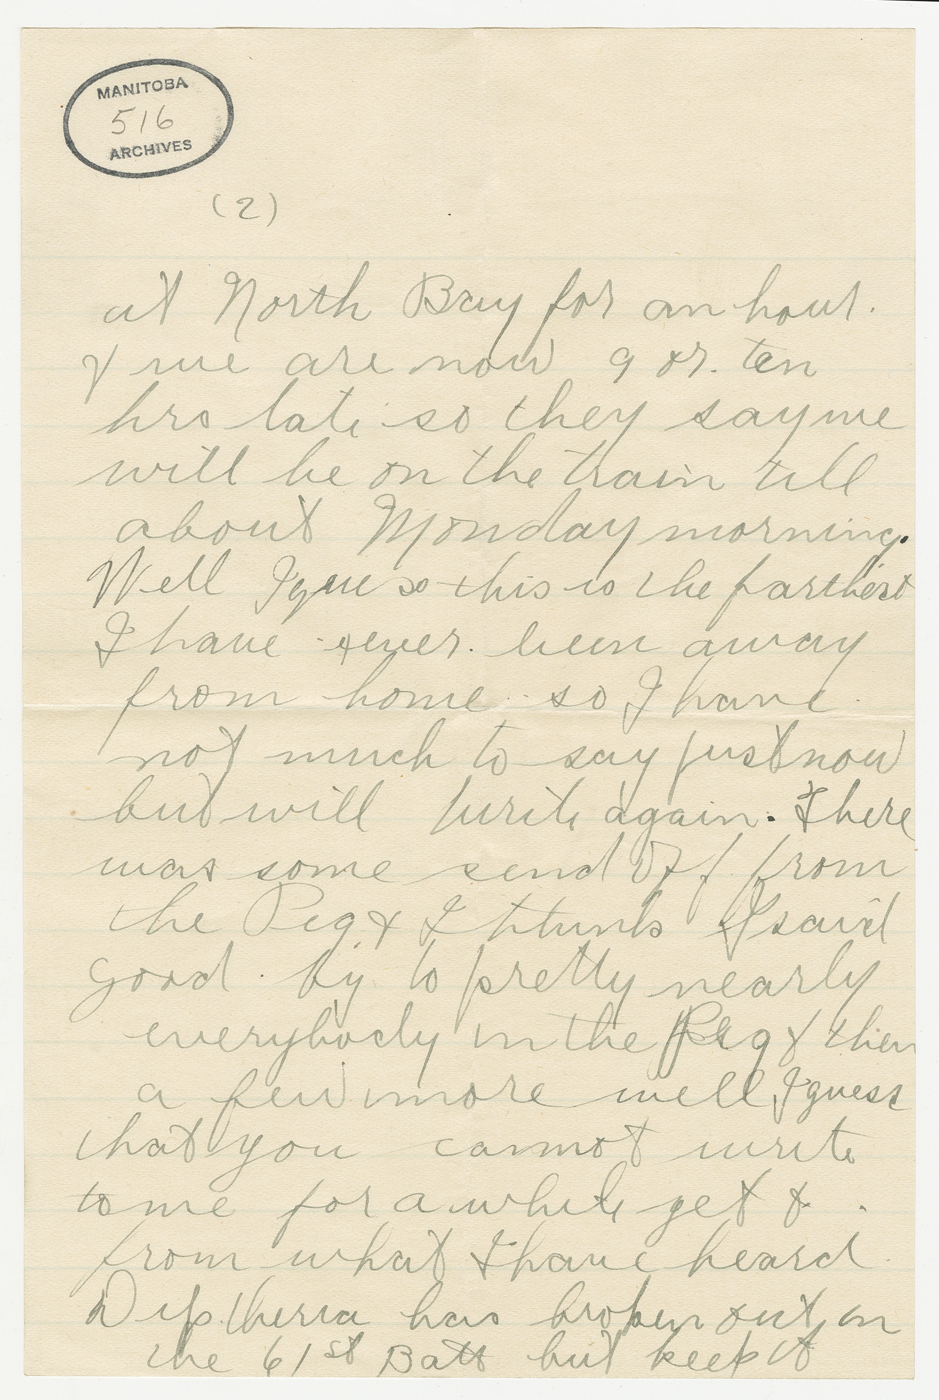 MANITOBA
516
ARCHIVES
(2)
at North Bay for an hour.
& we are now 9 or. ten
hrs late so they say we
will be on the train till
about Monday morning.
Well I guess this is the farthest
I have ever. been away
from home so I have
not much to say just now
but will write again. There
was some send off from
the Peg & I think I said
good by to pretty nearly
everybody in the Peg & then
a few more well I guess
that you cannot write
to me for a while yet &
from what I have heard
Diptheria has broken out in
the 61st Batt but keep it